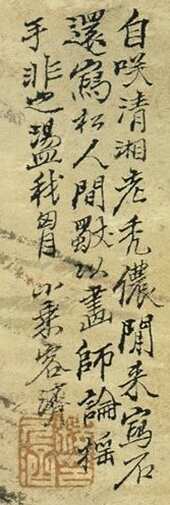 自咲清湘老秃儂閒来寫石
還寫松人間以畫師論摇
手非也盪我胷 小乘客濟